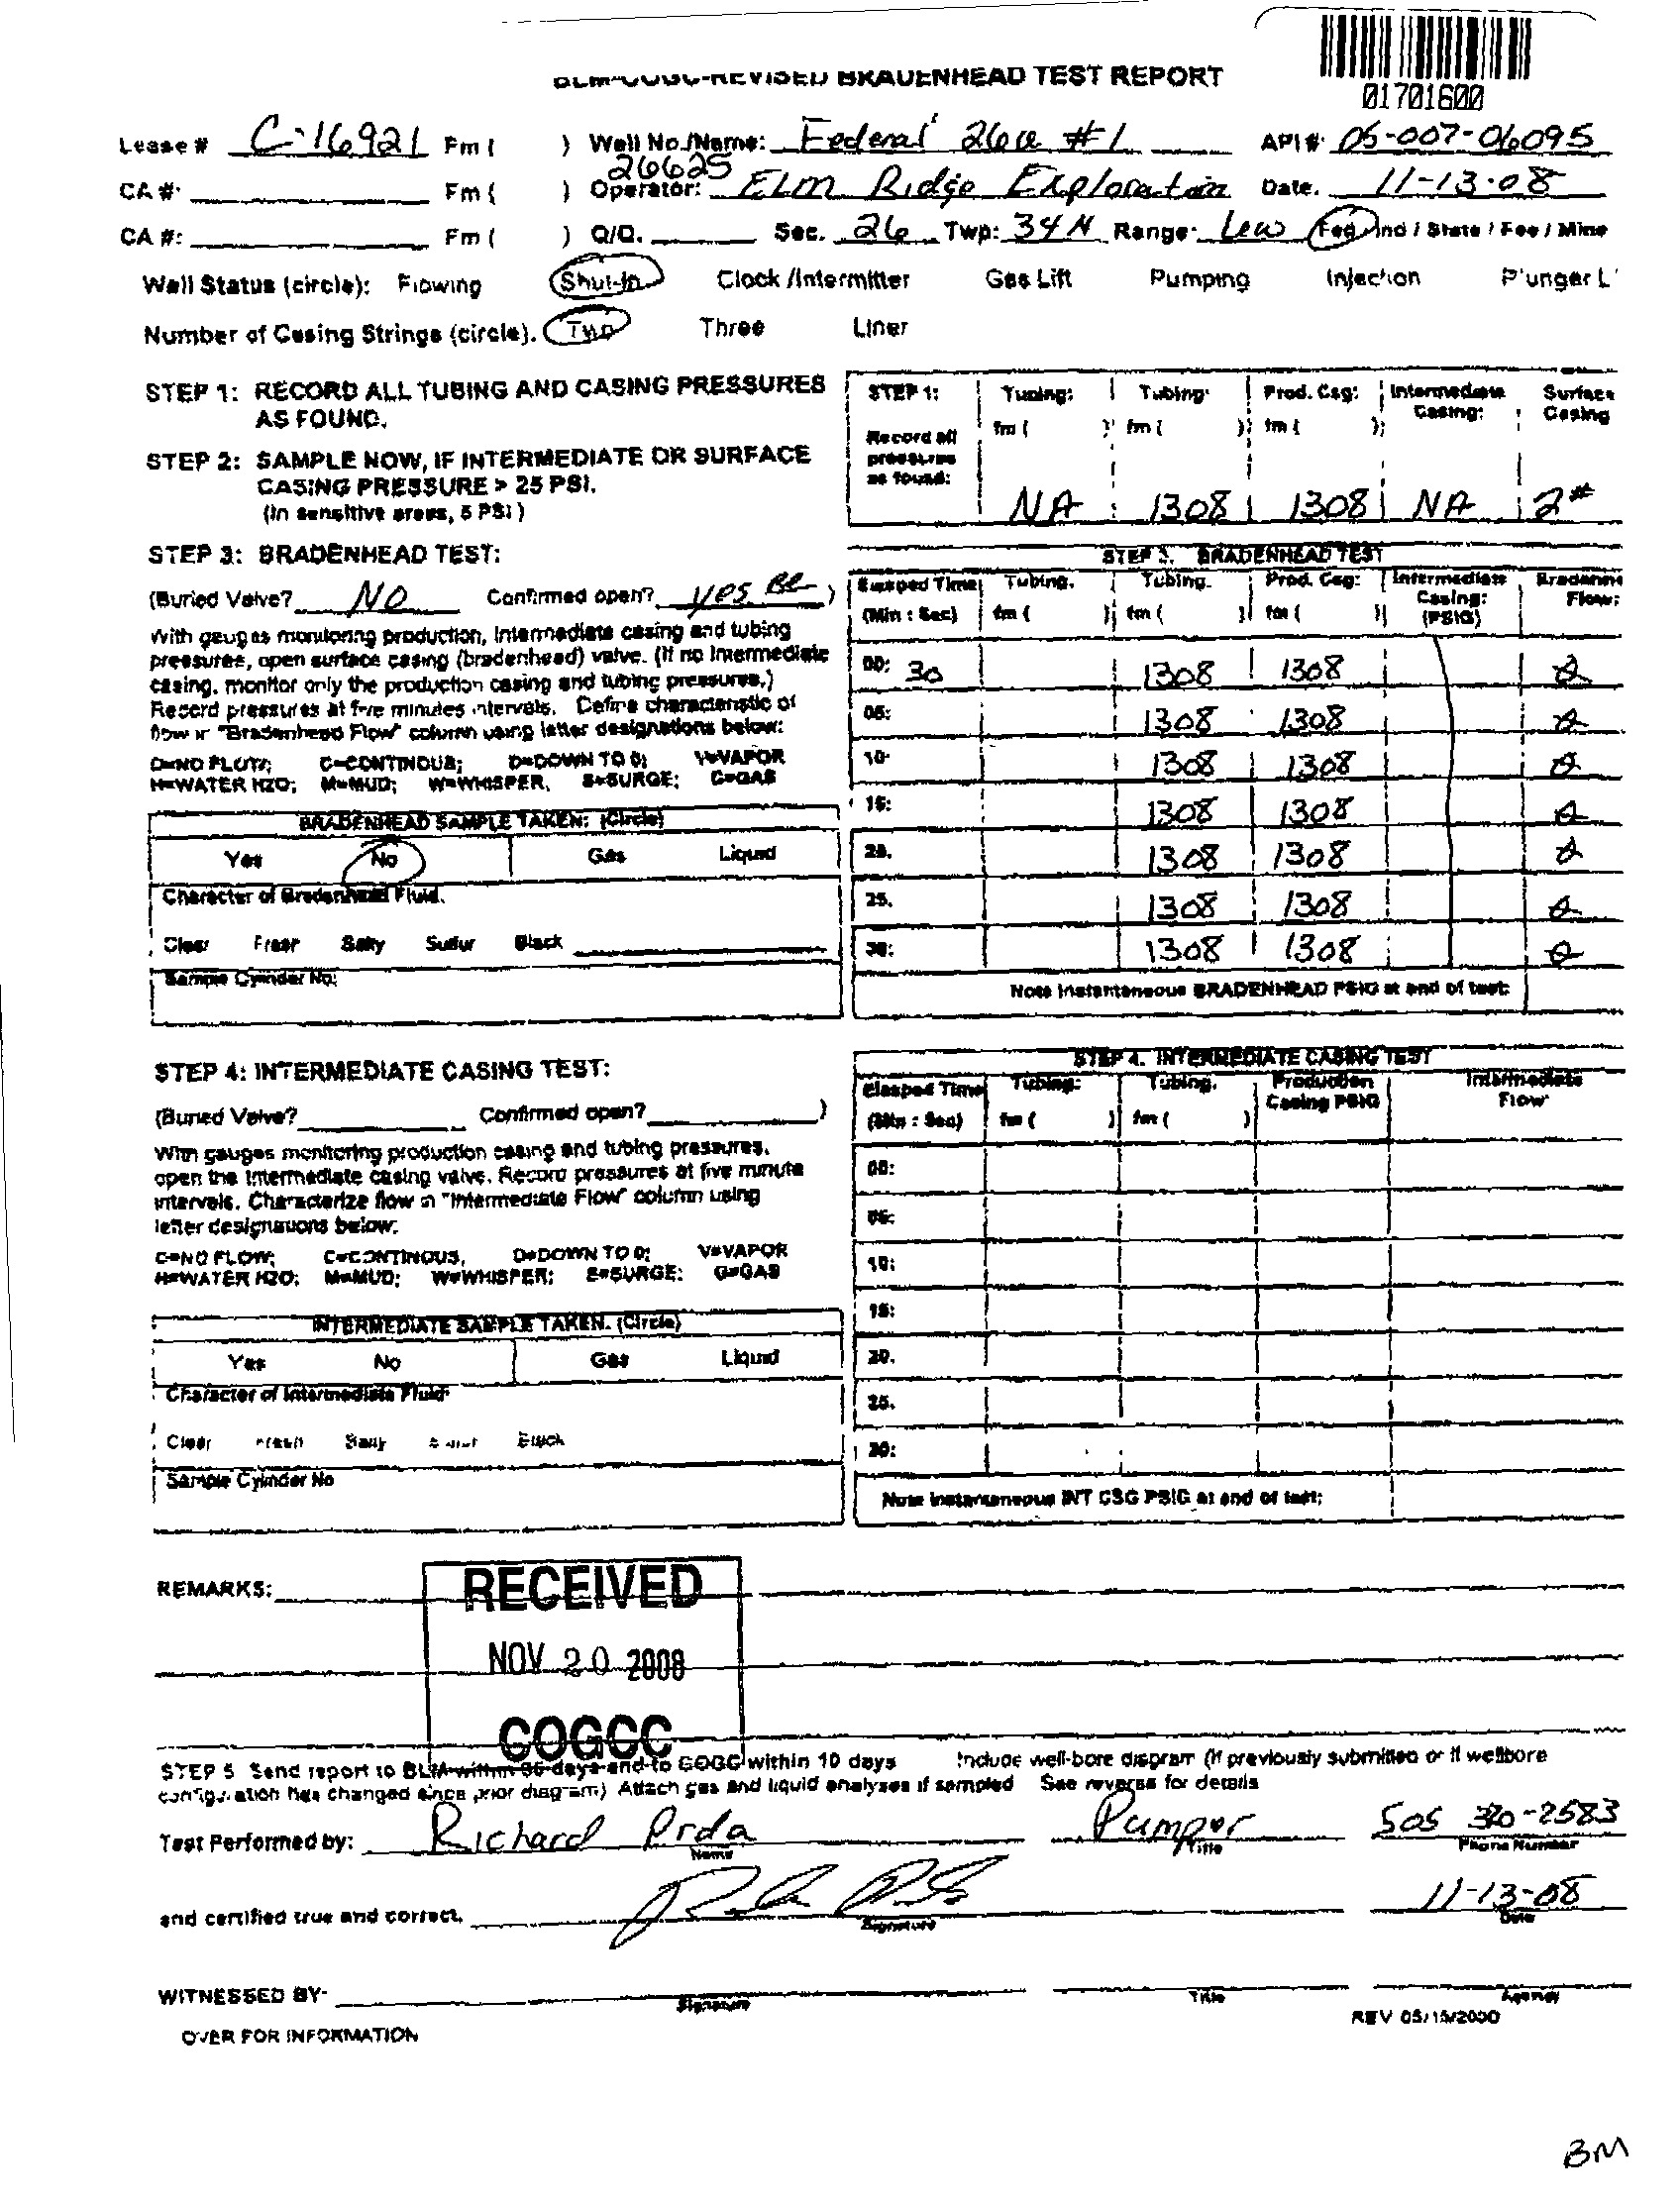 BLM-COGC-REVISED BRADENHEAD TEST REPORT
01701600
Lease # C-16921 Fm ( ) Well No./Name: Federal 26 #1 API #: 05-007-06095
26625
CA #: Fm ( ) Operator: Elm Ridge Exploration Date. 11-13-08
CA #: Fm ( ) Q/Q. Sec. 26 Twp: 34N Range: Fed / Ind / State / Fee / Mine
Well Status (circle): Flowing Shut-In Clock /Intermitter Gas Lift Pumping Injection Plunger L
Number of Casing Strings (circle). Two Three Liner
STEP 1: RECORD ALL TUBING AND CASING PRESSURES
AS FOUND.
STEP 2: SAMPLE NOW, IF INTERMEDIATE OR SURFACE
CASING PRESSURE > 25 PSI.
(In sensitive areas, 5 PSI)
STEP 1: Tubing: Tubing: Prod. Csg: Intermediate Casing: Surface Casing
Record all pressures as found: fm ( ) fm ( ) fm ( )
NA 1308 1308 NA 2#
STEP 3: BRADENHEAD TEST:
(Buried Valve? NO Confirmed open? yes )
With gauges monitoring production, Intermediate casing and tubing
pressures, open surface casing (bradenhead) valve. (If no Intermediate
casing, monitor only the production casing and tubing pressures.)
Record pressures at five minutes intervals. Define characteristic of
flow in "Bradenhead Flow" column using letter designations below:
O=NO FLOW; C=CONTINOUS; D=DOWN TO 0; V=VAPOR
H=WATER H2O; M=MUD; W=WHISPER, S=SURGE; G=GAS
BRADENHEAD SAMPLE TAKEN: (Circle)
Yes No Gas Liquid
Character of Bradenhead Fluid.
Clear Fresh Salty Sulfur Black
Sample Cylinder No:
STEP 3. BRADENHEAD TEST
Elasped Time (Min : Sec) Tubing. fm ( ) Tubing. fm ( ) Prod. Csg: fm ( ) Intermediate Casing: (PSIG) Flow:
00: 30 1308 1308
05: 1308 1308
10: 1308 1308
15: 1308 1308
20. 1308 1308
25. 1308 1308
30: 1308 1308
Note Instantaneous BRADENHEAD PSIG at end of test:
STEP 4: INTERMEDIATE CASING TEST:
(Buried Valve? Confirmed open? )
With gauges monitoring production casing and tubing pressures,
open the Intermediate casing valve. Record pressures at five minute
intervals. Characterize flow in "Intermediate Flow" column using
letter designations below:
O=NO FLOW; C=CONTINOUS, D=DOWN TO 0; V=VAPOR
H=WATER H2O; M=MUD; W=WHISPER; S=SURGE; G=GAS
INTERMEDIATE SAMPLE TAKEN. (Circle)
Yes No Gas Liquid
Character of Intermediate Fluid:
Clear Fresh Salty Sulfur Black
Sample Cylinder No
STEP 4. INTERMEDIATE CASING TEST
Elasped Time (Min : Sec) Tubing: fm ( ) Tubing. fm ( ) Production Casing PSIG Intermediate Flow
00:
05:
10:
15:
20.
25.
30:
Note instantaneous INT CSG PSIG at end of test:
REMARKS:
RECEIVED
NOV 20 2008
COGCC
STEP 5 Send report to BLM within 30 days and to COGC within 10 days Include well-bore diagram (If previously submitted or if wellbore
configuration has changed since prior diagram) Attach gas and liquid analyses if sampled See reverse for details
Test Performed by: Richard Pumper 505 320-2583
Name Title Phone Number
and certified true and correct. 11-13-08
Signature Date
WITNESSED BY-
Signature Title Agency
OVER FOR INFORMATION REV 05/15/2000
BM